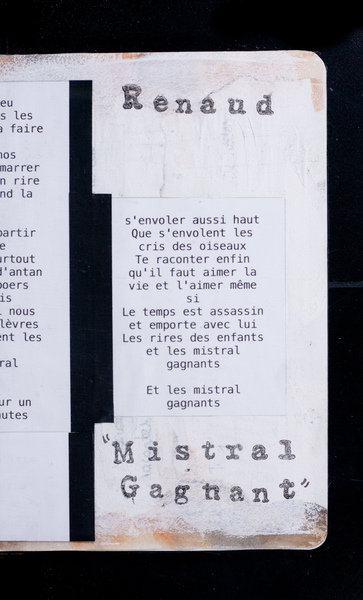 eu
s les
a faire
nos
marrer
n rire
nd la
partir
e
urtout
d'antan
poers
is
nous
lèvres
ent les
ral
ur un
nutes
Renaud
s'envoler aussi haut
Que s'envolent les
cris des oiseaux
Te raconter enfin
qu'il faut aimer la
vie et l'aimer même
si
Le temps est assassin
et emporte avec lui
Les rires des enfants
et les mistral
gagnants
Et les mistral
gagnants
"Mistral
Gagnant"